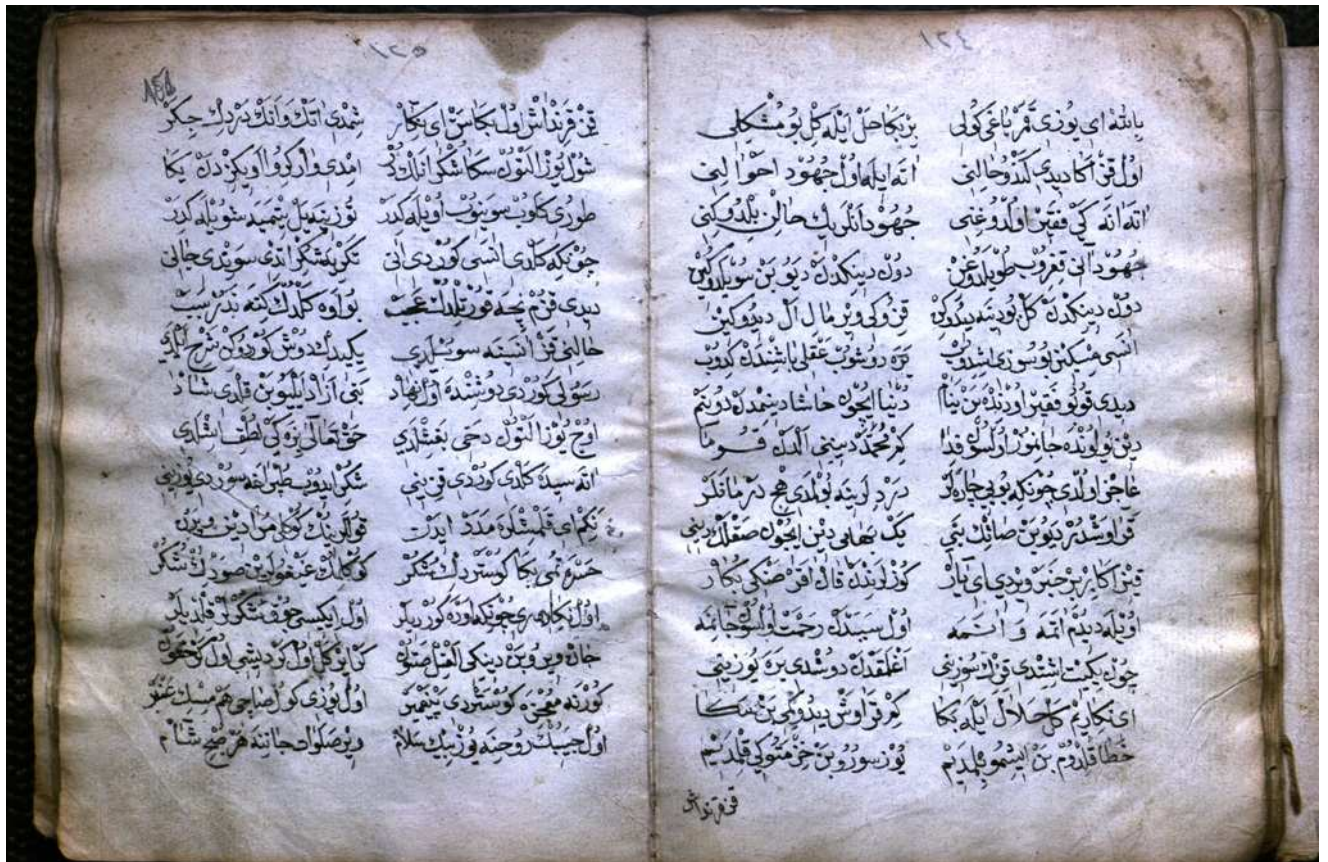 ١٢٤
بالله ای یوزی قمر باغی کولی بر بکا حل ایله کل بو مشکلی
اول قز اکا دیدی کندو حالنی اته ایله اول جهود احوالنی
اته انه کی فقیر اولدوغنی جهود انلرک حالن بلدوکنی
جهود انی دیو بن سویلدوکن
دون دینکدن کل بو دینه دیدوکن قزوکی ویر مال ال دیدوکین
انسی مسکین بو سوزی اشدوب یره دوشوب عقلی باشندن کدوب
دیدی قولو فقیر اورندم بن یانا دنیا ایچون حاشا دینمدن دونم
دین یولونده جانمز اولسون فدا کم محمد دینی الدن قوما
عاجز اولدی چونکه بو بیچاره لر درد لرینه بولمدی هیچ درمانلر
دیو بن صاتک بنی بک بهامی دین ایچون صقلاک دینی
قیز اکا بر بر خبر ویردی ای یار کوزلرندن قان اقر صنکی بکار
اویله دیدم اتمه و انمه اول سبدن رحمت اولسون جانمه
چون یکیت اشتدی قزک سوزنی اغلمقدن دوشدی یره یوزینی
ای نکاریم کل حلال ایله بکا کم قراوش دیدوکمی بن سکا
خطا قلدوم بن ایشمو بلمدیم یوز سورو بن خزمتوکی قلمدیم
قز قرنداش
١٢٥
قز قرنداش اول بکا سن ای نکار شمدی اتک و انک دردک چکر
شول یوز التون سکا شکرانلک در امدی وار کرو اویکزدن یکا
طوری کلوب سوینوب اویله کدر توز ینه یل یتمیه شویله کدر
چونکه کلدی انسی کوردی انی تکریه شکر اتدی سوندی جانی
دیدی قزم نجه قورتلدک عجب بو اوه کلمدک کته ندر سبب
حالنی قز انسنه سویلدی یکیدک دوش کوردوکن شرح ایلدی
رسولی کوردی دوشنده اول نهاد بنی ازاد ایلیو بن قلدی شاد
اوچ یوز التون دخی بغشلدی حق تعالی بزه کی لطف اشلدی
انه سیده کلدی کوردی قزینی شکر ایدوب طپراغه سوردی یوزینی
کم ای قلمشلره مدد ایدن قوللرینک کوکلی مرادین ویرن
حسرتمی بکا کوستردک شکر کوکلمک غمغولرین صوردک شکر
اول نکارلری چونکه اوده کوردیلر اول ایکسی چوق شکرلر قلدیلر
جان ویرو بن دینکی المغل صتون
کورنه معجزه کوستردی پیغمبر اول یوزی کول صاچی هم مسک عنبر
اول حبیبک روحنه یوز بیک سلام ویر صلوات جاننه هر صبح شام